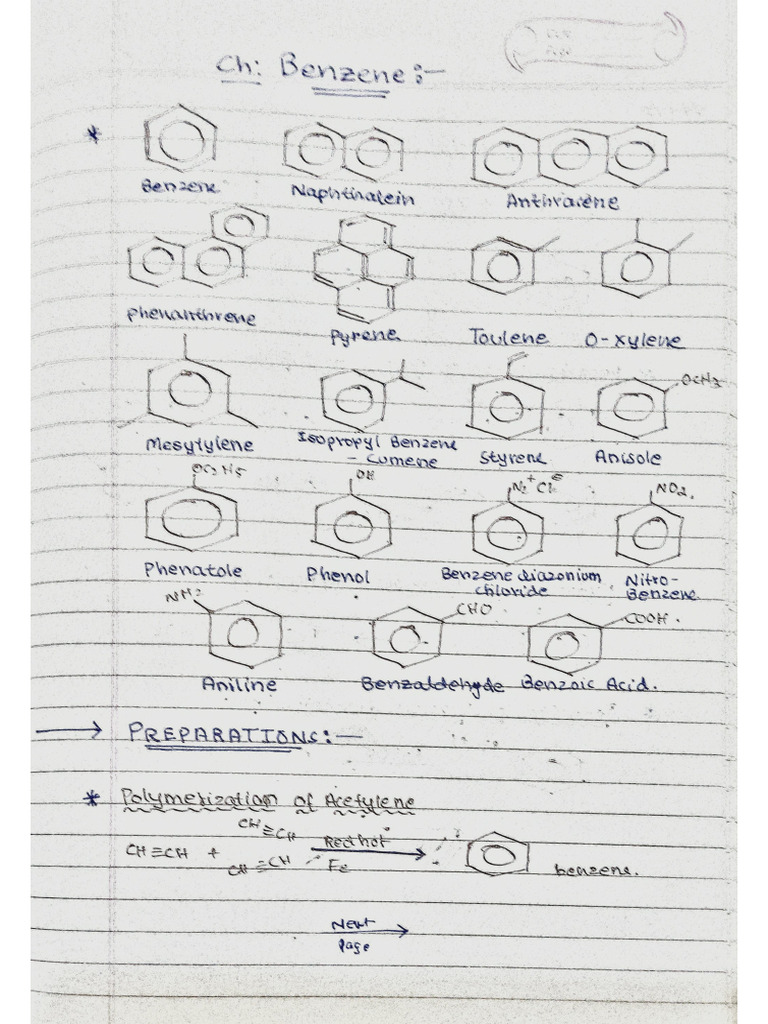 Ch: Benzene:-
* Benzene Naphthalein Anthracene
Phenanthrene Pyrene Toulene O-xylene
OCH3
Mesytylene Isopropyl Benzene Cumene Styrene Anisole
OC2H5 OH N2+Cl⊖ NO2.
Phenatole Phenol Benzene diazonium chloride Nitro-Benzene
NH2 CHO COOH.
Aniline Benzaldehyde Benzoic Acid.
→ PREPARATIONS:—
* Polymerization of Acetylene
CH≡CH
CH≡CH + CH≡CH Red hot Fe → benzene.
Next page →